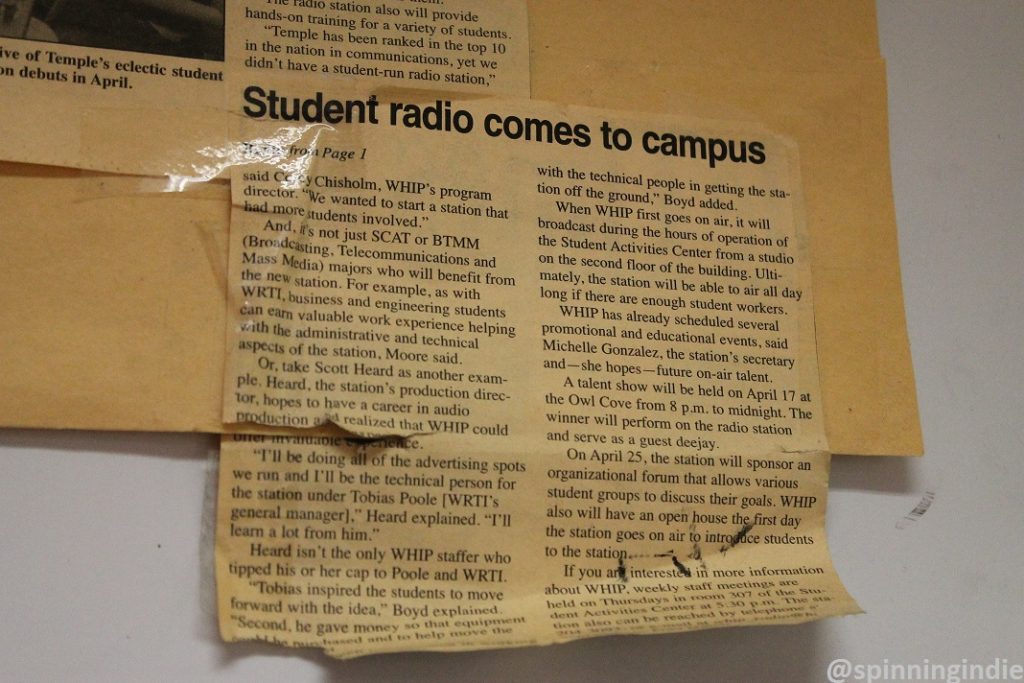 ive of Temple's eclectic student
on debuts in April.
The radio station also will provide
hands-on training for a variety of students.
"Temple has been ranked in the top 10
in the nation in communications, yet we
didn't have a student-run radio station,"
Student radio comes to campus
from Page 1
said Chisholm, WHIP's program
director. "We wanted to start a station that
had more students involved."
And, it's not just SCAT or BTMM
(Broadcasting, Telecommunications and
Mass Media) majors who will benefit from
the new station. For example, as with
WRTI, business and engineering students
can earn valuable work experience helping
with the administrative and technical
aspects of the station, Moore said.
Or, take Scott Heard as another exam-
ple. Heard, the station's production direc-
tor, hopes to have a career in audio
production and realized that WHIP could
offer invaluable experience.
"I'll be doing all of the advertising spots
we run and I'll be the technical person for
the station under Tobias Poole [WRTI's
general manager]," Heard explained. "I'll
learn a lot from him."
Heard isn't the only WHIP staffer who
tipped his or her cap to Poole and WRTI.
"Tobias inspired the students to move
forward with the idea," Boyd explained.
"Second, he gave money so that equipment
could be purchased and to help move the
with the technical people in getting the sta-
tion off the ground," Boyd added.
When WHIP first goes on air, it will
broadcast during the hours of operation of
the Student Activities Center from a studio
on the second floor of the building. Ulti-
mately, the station will be able to air all day
long if there are enough student workers.
WHIP has already scheduled several
promotional and educational events, said
Michelle Gonzalez, the station's secretary
and—she hopes—future on-air talent.
A talent show will be held on April 17 at
the Owl Cove from 8 p.m. to midnight. The
winner will perform on the radio station
and serve as a guest deejay.
On April 25, the station will sponsor an
organizational forum that allows various
student groups to discuss their goals. WHIP
also will have an open house the first day
the station goes on air to introduce students
to the station.
If you are interested in more information
about WHIP, weekly staff meetings are
held on Thursdays in room 307 of the Stu-
dent Activities Center at 5:30 p.m. The sta-
tion also can be reached by telephone
@spinningindie